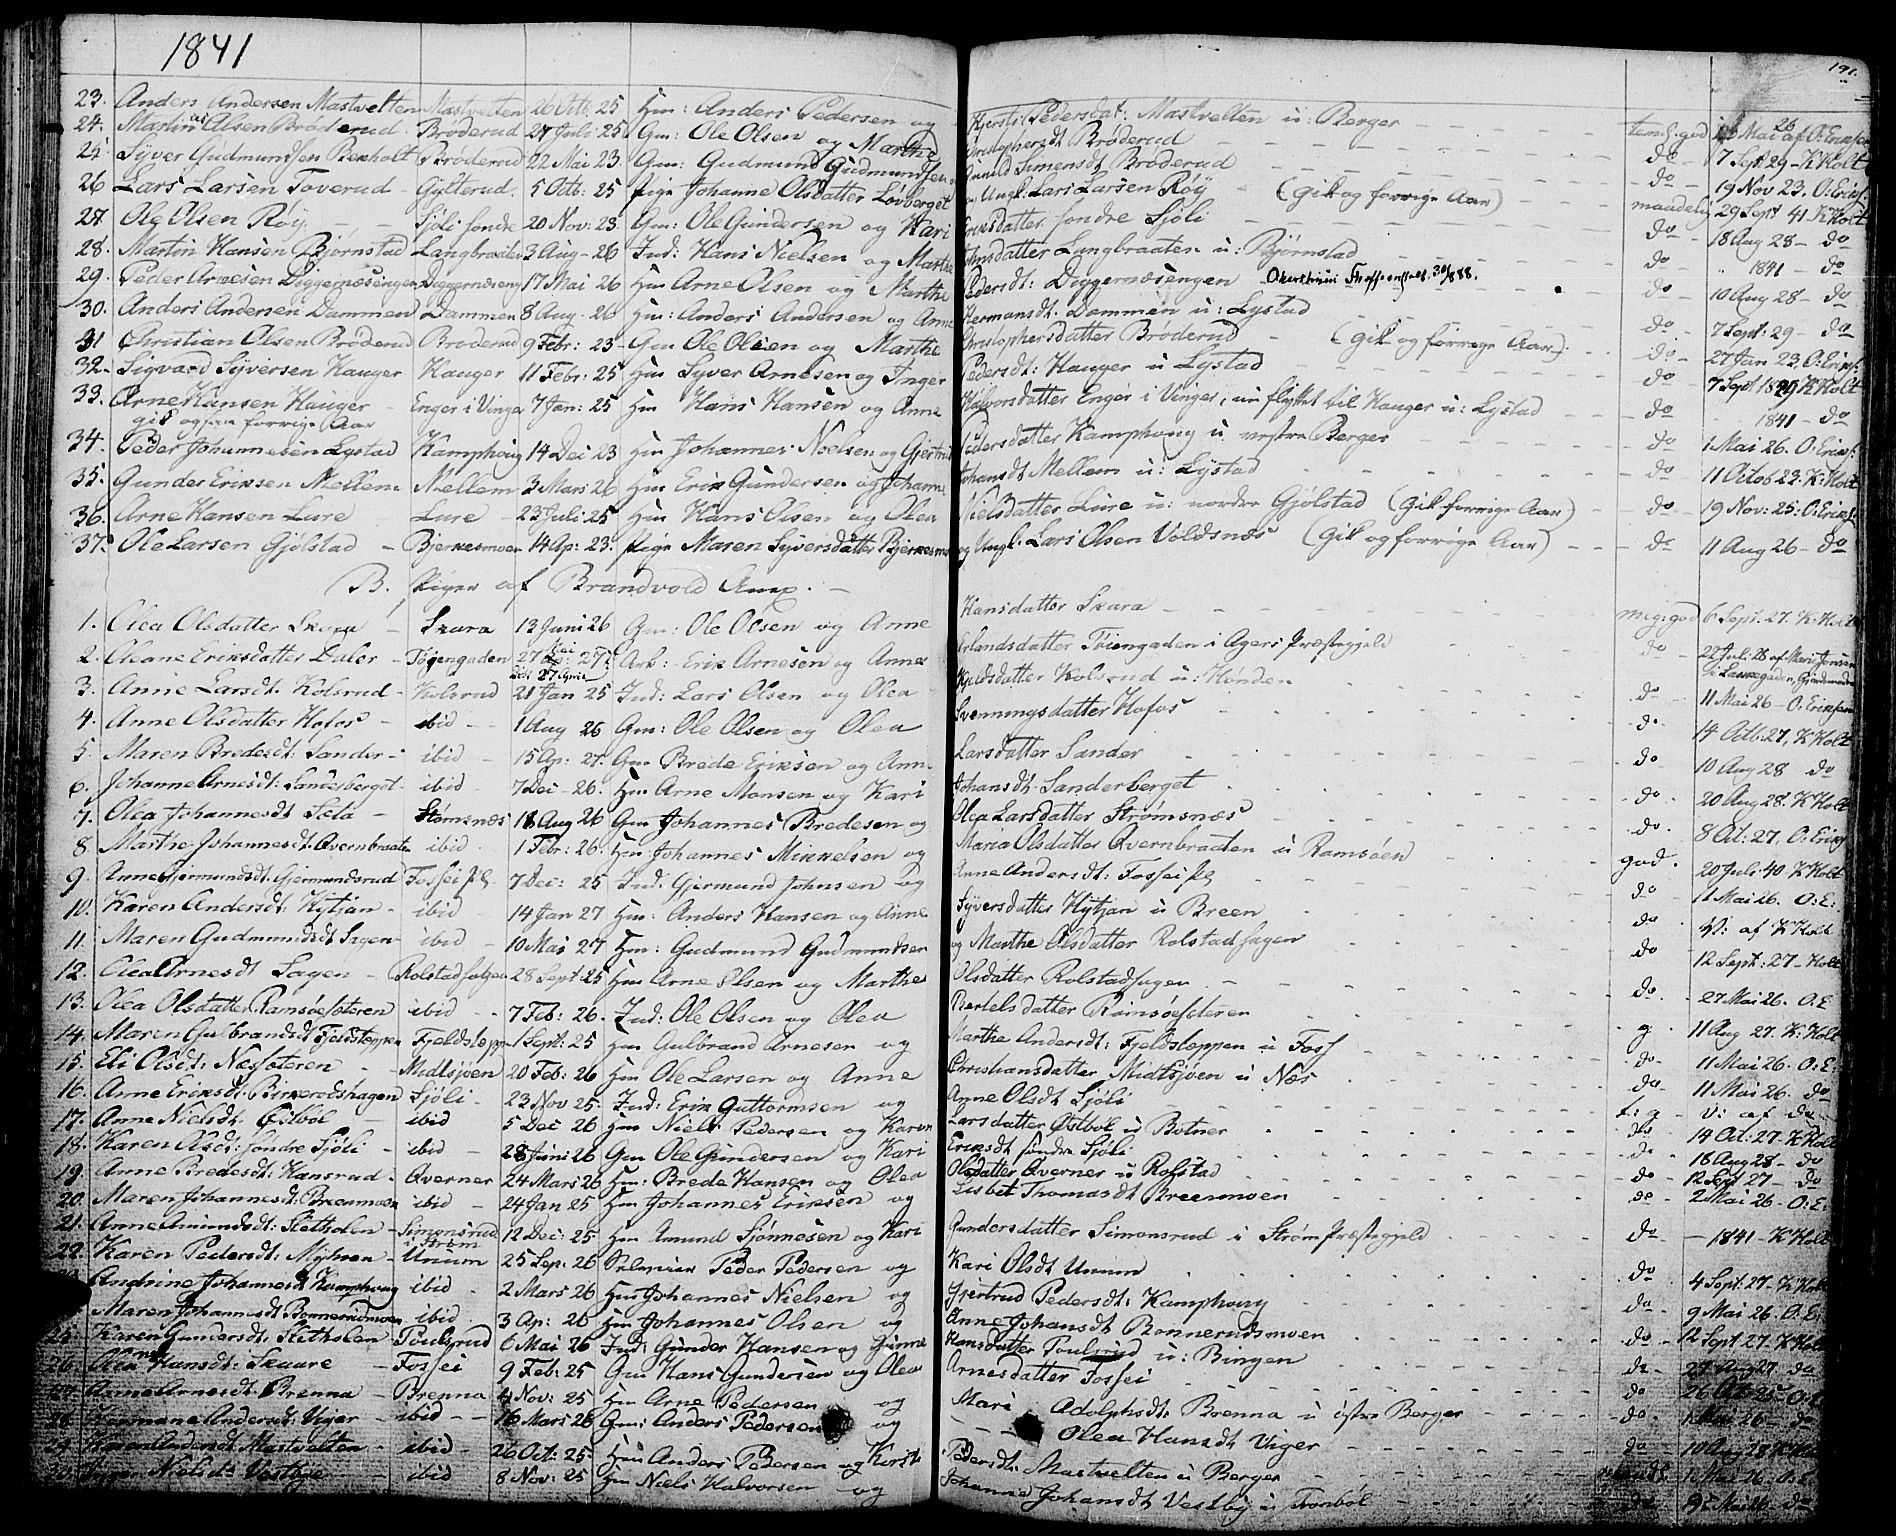 1841
191.
23. Anders Andersen Mastvelten Mastvelten 26 Octb: 25 Hm: Anders Pedersen og Kjersti Pedersdat: Mastvelten u: Berger temel: god Mai 26 af O: Eriksen
24. Martin Olsen Brøderud - Brøderud 27 Juli 25 Gm: Ole Olsen og Marthe Christophersdt Brøderud do - 7 Sept 29 - K Holt
25 Syver Gudmundsen Berholt Brøderud 22 Mai 23. Gm: Gudmund Gudmundsen Gunild Simensdt Brøderud do 19 Nov 23. O: Eriks:
26 Lars Larsen Toverud - Gylterud. 5 Octb: 25 Pige Johanne Olsdatter Løvberget og Ungk: Lars Larsen Røÿ - (gik og forrige Aar) maadelig 29 Sept 41 K Holt
27 Ole Olsen Røy. - Sjøli søndre 20 Nov: 23. Gm: Ole Gundersen og Kari Eriksdatter søndre Sjøli do 18 Aug 28 - do
28. Martin Hansen Bjørnstad Langbraaten 3 Aug - 26 Ind: Hans Nielsen og Marthe Langbraaten u: Bjørnstad do - 1841 - do
29. Peder Arnesen Diggernæsengen Diggernæseng 17 Mai 26 Hm Arne Olsen og Marthe Pedersdt: Diggernæsengen do - 10 Aug 28 - do
30. Anders Andersen Dammen Dammen 8 Aug - 26 Hm: Anders Andersen og Anne Hermansdt. Dammen u: Lystad do - 7 Sept: 29 - do
31 Christian Olsen Brøderud Brøderud 9 Febr: 23 - Gm Ole Olsen og Marthe Christophersdatter Brøderud - (gik og forrige Aar). do - 27 Jan 23, O: Eriks:
32. Sigvard Syversen Hauger Hauger 11 Febr: 25 Hm Syver Arnesen og Inger Pedersdt: Hauger u Lystad do - 7 Sept 1829 K Holt
33. Arne Hansen Hauger - Enger i Vinger 7 Jan: 25 Hm Hans Hansen og Anne Halvorsdatter Enger i Vinger, nu flyttet til Hauger u: Lystad do - 1841 - do
gik ogsaa forrige Aar
34. Peder Johannesen Lystad Kamphoug 14 Dec 23 Hm Johannes Nielsen og Gjertrud Pedersdatter Kamphoug u vestre Berger do - 1 Mai 26. O: Eriks:
35. Gunder Eriksen Mellem Mellem 3 Mars 26 Hm Erik Gundersen og Johanne Johansdt Mellem u: Lystad do - 11 Octob 23. K: Holt
36. Arne Hansen Lure Lure 23 Juli 25 Hm Hans Olsen og Olea Nielsdatter Lure u: nordre Gjølstad (gik forrige Aar) do - 19 Nov: 25: O: Eriks:
37. Ole Larsen Gjølstad - Bjerkesmoen 14 Ap: 23. Pige Maren Syversdatter Bjerkesmoen og Ungk: Lars Olsen Voldsnæs (Gik og forrige Aar) - do - 11 Aug 26 - do
B. Piger af Brandvold Anx. -
1. Olea Olsdatter Skara - Skara 13 Juni 26 Gm: Ole Olsen og Anne Hansdatter Skara - meg: god 6 Sept. 27. K: Holt
2. Oleane Eriksdatter Daler - Tøyengaden 27 27 Arb: Erik Arnesen og Anne Erlandsdatter Tøiengaden i Agers Præstegjeld do - 27 Juli 28 af Mari Jensen
3. Anne Larsdt. Kolsrud - Kolsrud 21 Jan 25 Ind: Lars Olsen og Olea Kjeldsdatter Kolsrud u: Hønden do - 11 Mai 26 - O: Eriksen
4. Anne Olsdatter Hofos - ibid - 1 Aug 26 Gm: Ole Olsen og Olea Svenningsdatter Hofos do - 14 Octb: 27, K Holt
5. Maren Bredesdt: Sander - ibid - 15 Ap: 27. Gm Brede Eriksen og Anne Larsdatter Sander do 10 Aug 28 do
6. Johanne Arnesdt: Sanderberget - ibid - 7 Dec - 26. Hm Arne Monsen og Kari Johansdt. Sanderberget do - 20 Aug 28. K Holt
7. Olea Johannesdt Sæla - Stømsnæs 18 Aug 26 Gm Johannes Bredesen og Olea Larsdatter Strømsnæs do. 8 Oct: 27. O: Eriks
8 Marthe Johannesdt: Qvernbraaten ibid - 1 Febr: 26. Hm: Johannes Mikkelsen og Maria Olsdatter Qvernbraaten u Ramsøen god. 20 Juli 40 K Holt
9. Anne Gjermundsdt. Gjermundsrud Fossei 7 Dec: 25 Ind: Gjermund Johnsen og Anne Andersdt: Fossei do - 11 Mai 26. O: E:
10. Karen Andersdt: Hytjan - ibid - 14 Jan 27 Hm: Anders Hansen og Anne Syversdatter Hytjan u Breen do V: af K Holt
11. Maren Gudmundsdt Sagen - ibid - 10 Mai 27 Hm: Gudmund Gudmundsen og Marthe Olsdatter Rolstadsagen do 12 Sept: 27 - Holt
12. Olea Arnesdt Sagen - Rolstadsagen 28 Sept 25 Hm Arne Olsen og Marthe Olsdatter Rolstadsagen do. 27 Mai 26. O: E
13. Olea Olsdatter Ramsøesæteren ibid - 7 Feb: 26. Ind: Ole Olsen og Olea Bertelsdatter Ramsøesæteren g. 11 Aug 27. K: Holt
14. Maren Gulbrandsdt Fjeldstøppen Fjeldstøpp 1 Sept: 25 Hm Gulbrand Arnesen og Marthe Andersdt: Fjeldstøppen u Foss do. 11 Mai 26. O: E:
15. Eli Olsdt: Næssæteren - Midtsjøen 20 Feb: 26 Hm Ole Larsen og Anne Christiansdatter Midtsjøen u Næs do - 11 Mai 26. do
16. Anne Eriksdt. Birkerodshagen Sjøli - 23 Nov 25. Ind: Erik Guttormsen og Anne Olsdt Sjøli t: g V: af do
17. Anne Nielsdt. Østbøl - ibid - 5 Dec 26 Hm Niels Pedersen og Karen Larsdatter Østbøl u Botner do - 14 Oct: 27 - K Holt
18. Karen Olsdt: søndre Sjøli - ibid - 28 Juni 26 Gm Ole Gundersen og Kari Eriksdt søndre Sjøli do - 18 Aug 28 - do
19. Anne Bredesdt: Hansrud - Qverner 24 Mars 26 Hm: Brede Hansen og Olea Olsdatter Qverner u Rolstad do - 12 Sept 27 - do
20. Maren Johannesdt: Breenmoen ibid - 24 Jan 25 Hm Johannes Eriksen og Lisbet Thomasdt Breenmoen do - 2 Mai 26 - O: E:
21. Anne Amundsdt: Stetholen - Simonsrud i Strøm 12 Dec: 25 Hm Amund Sjønnesen og Kari Gundersdatter Simonsrud i Strøm Præstegjeld do - - 1841 - K Holt
22. Karen Pedersdt: Myhren - Unum 25 Sep. 26 Selveier Peder Pedersen og Kari Olsdt Unum do - 4 Sept. 27 - K Holt
Andrine Johannesdt Kamphoug ibid - 2 Mars 26 Hm Johannes Nielsen og Gjertrud Pedersdt: Kamphoug do - 9 Mai 26 - O: E:
Maren Johannesdt Bonnerudmoen ibid - 3 Ap: 26 Hm Johannes Olsen og Anne Johansdt Bonnerudsmoen do - 12 Sept 27. K Holt
25. Karen Gundersdt. Stetholen - Poulsrud 6 Mai 26 Ind: Gunder Hansen og Gunne Hansdatter Poulsrud u: Bingen do - 27 Aug 27 do
26. Olea Hansdt: Skaare - Fossei 9 Feb: 25 Gm Hans Gundersen og Olea Arnesdatter Fossei do 26 Oct 25 - O: E:
27. Anne Arnesdt. Brenna - Brenna 4 Nov: 25 Hm Arne Pedersen og Mari Adolphsdt: Brenna u østre Berger do - 1 Mai 26 - do
28. Hermane Andersdt. Viger - ibid - - 16 Mars 26 Gm: Anders Pedersen og Olea Hansdt Viger do - 10 Aug 28 K Holt
29. Karen Andersdt Mastvelten - ibid - 26 Oct: 25. Hm Anders Pedersen og Kirsti Pedersdt: Mastvelten u Berger 1 Mai 26 - O: E:
30. Inger Nielsdt Vestbye - ibid 8 Nov: 25 Hm Niels Halvorsen og Johanne Johansdt Vestby u Tronbøl do